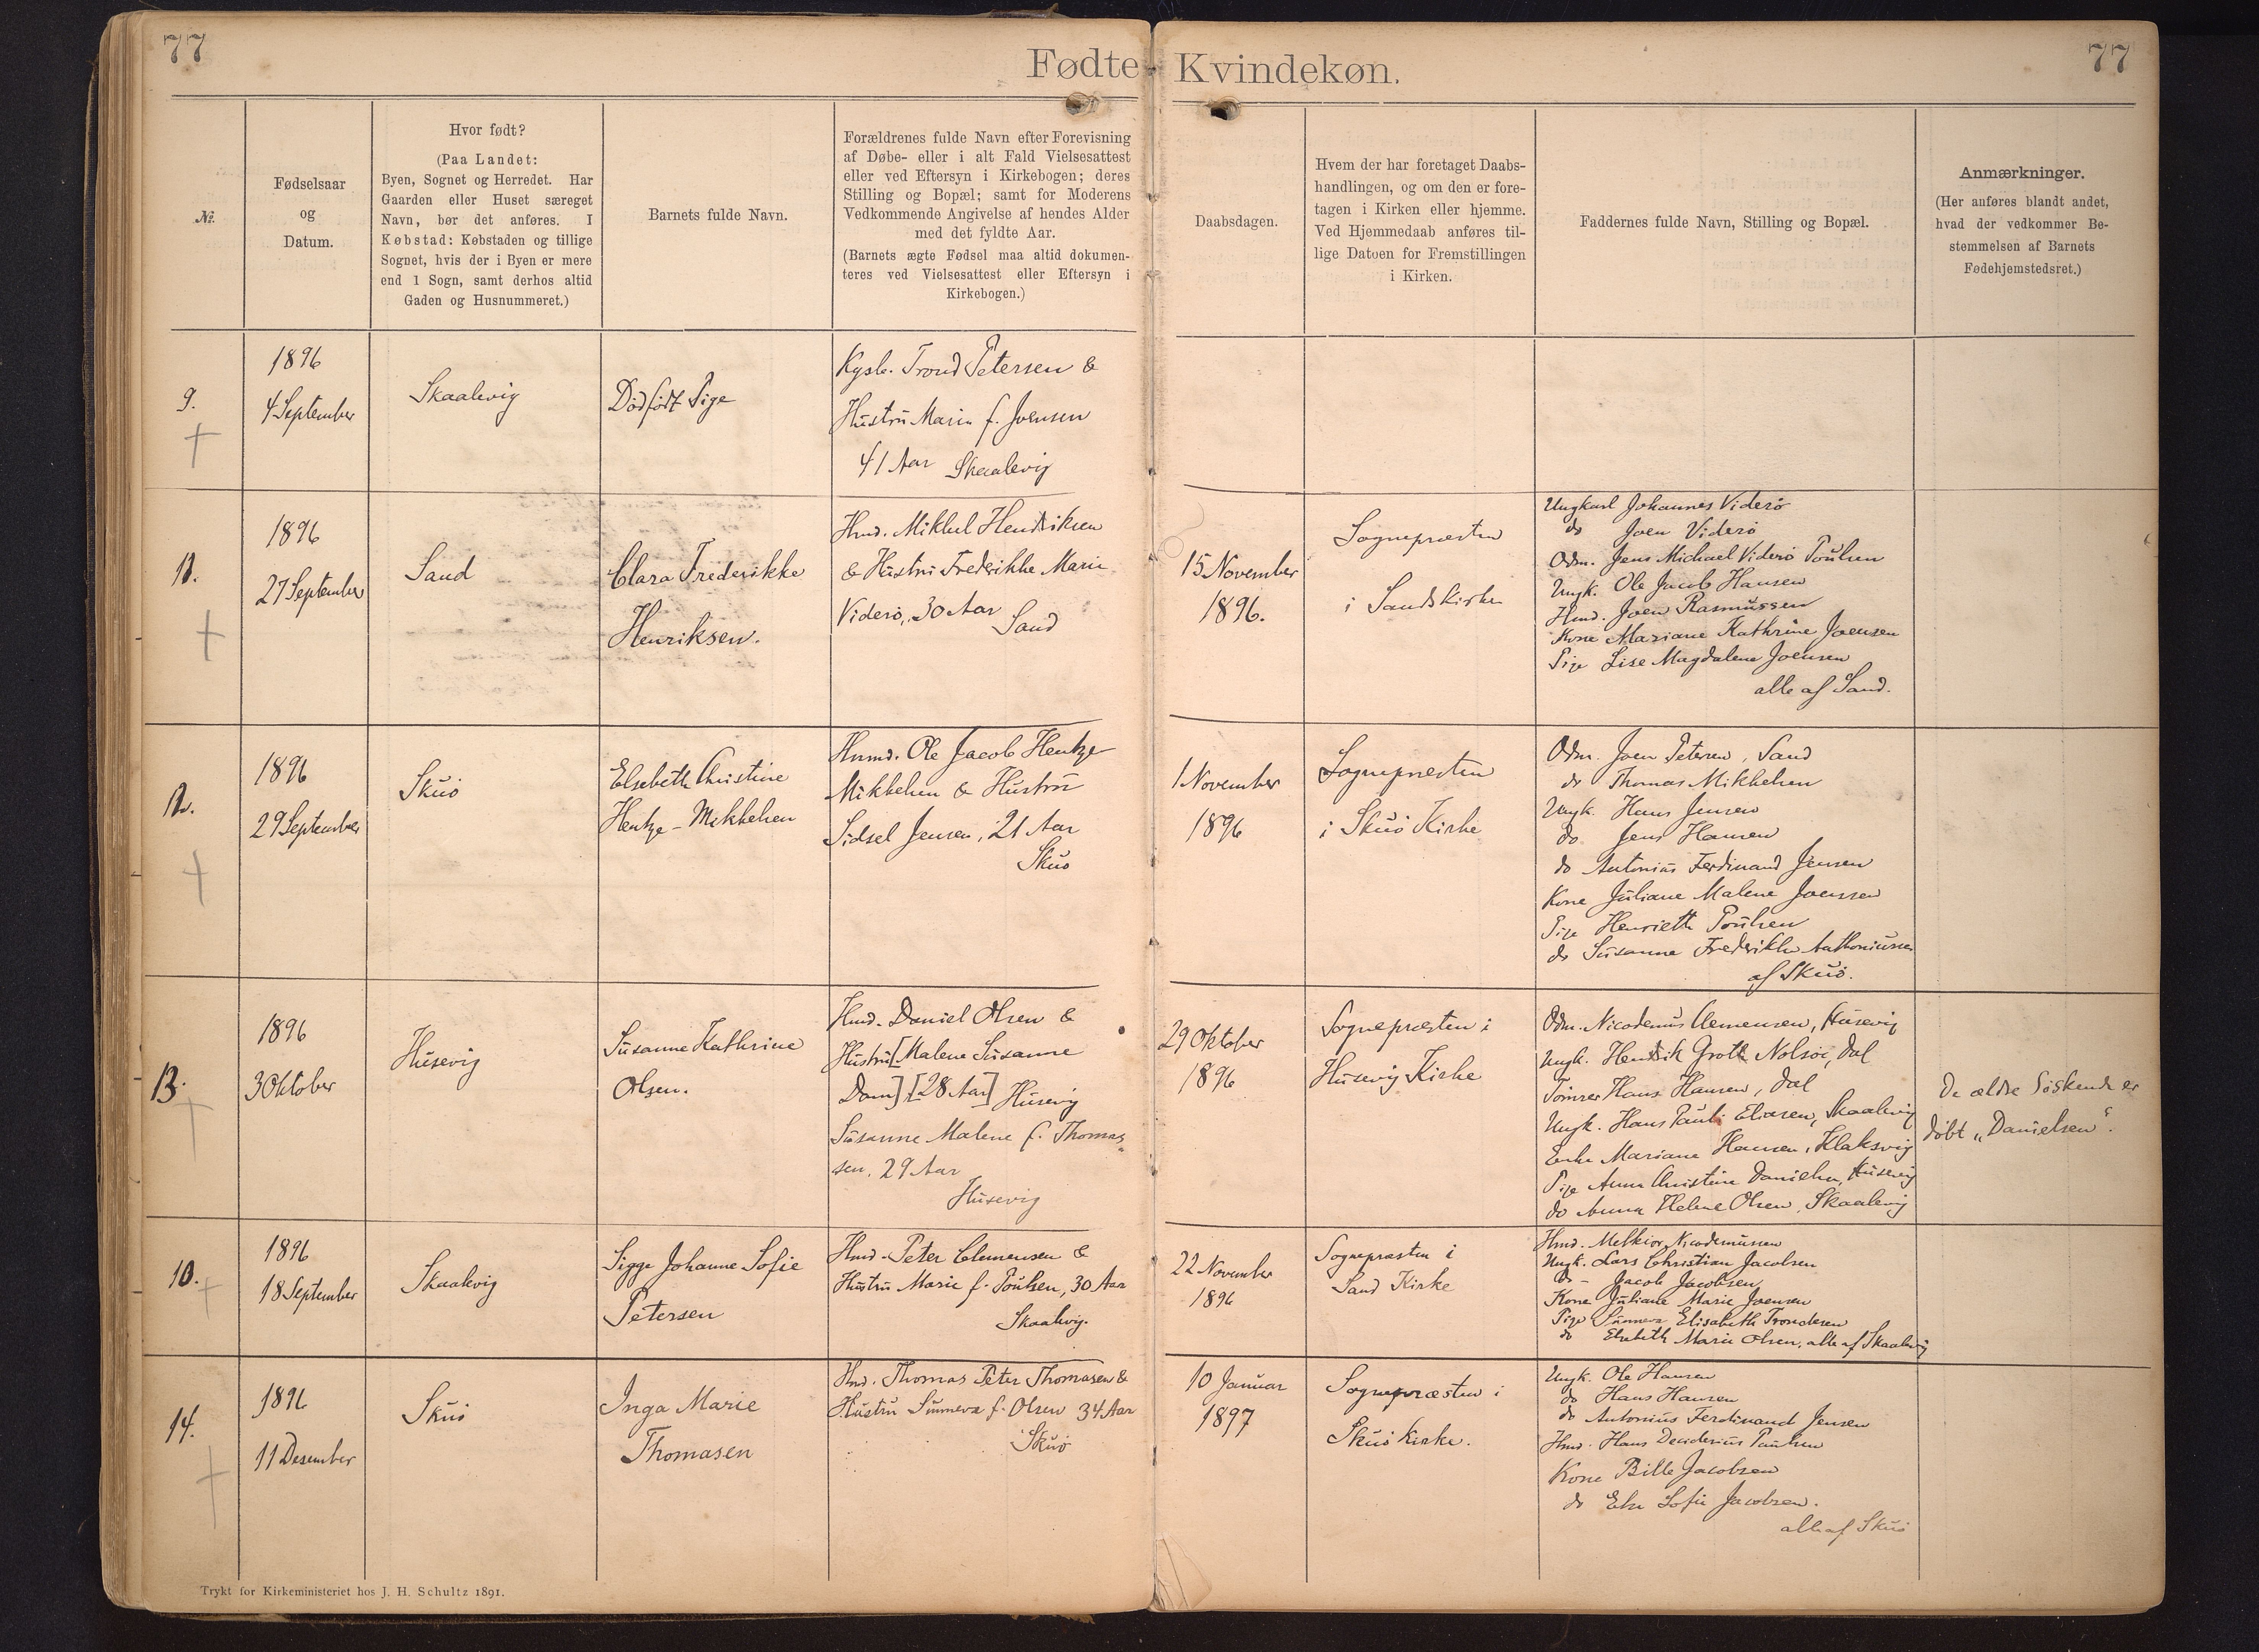 77
Fødte Kvindekøn.
77
№
Fødselsaar
og
Datum.
Hvor født?
(Paa Landet:
Byen, Sognet og Herredet. Har
Gaarden eller Huset særeget
Navn, bør det anføres. I
Købstad: Købstaden og tillige
Sognet, hvis der i Byen er mere
end 1 Sogn, samt derhos altid
Gaden og Husnummeret.)
Barnets fulde Navn.
Forældrenes fulde Navn efter Forevisning
af Døbe- eller i alt Fald Vielsesattest
eller ved Eftersyn i Kirkebogen; deres
Stilling og Bopæl; samt for Moderens
Vedkommende Angivelse af hendes Alder
med det fyldte Aar.
(Barnets ægte Fødsel maa altid dokumen-
teres ved Vielsesattest eller Eftersyn i
Kirkebogen.)
Daabsdagen.
Hvem der har foretaget Daabs-
handlingen, og om den er fore-
tagen i Kirken eller hjemme.
Ved Hjemmedaab anføres til-
lige Datoen for Fremstillingen
i Kirken.
Faddernes fulde Navn, Stilling og Bopæl.
Anmærkninger.
(Her anføres blandt andet,
hvad der vedkommer Be-
stemmelsen af Barnets
Fødehjemstedsret.)
9.
1896
4 September
Skaalevig
Dødfødt Pige
Kgsb. Trond Petersen &
Hustru Maria f. Joensen
41 Aar Skaalevig
11.
1896
27 September
Sand
Clara Frederikke
Henriksen.
Hmd. Mikkel Hendriksen
& Hustru Frederikke Marie
Viderø, 30 Aar
Sand
15 November
1896.
Sognepræsten
i Sands Kirke
Ungkarl Johannes Viderø
do Joen Viderø
Odm. Jens Michael Viderø Poulsen
Ungk. Ole Jacob Hansen
Hmd. Joen Rasmussen
Kone Mariane Kathrine Joensen
Pige Lise Magdalene Joensen
alle af Sand.
12.
1896
29 September
Skuø
Elsebeth Christine
Hentze-Mikkelsen
Hmd. Ole Jacob Hentze
Mikkelsen & Hustru
Sidsel Jensen, 21 Aar
Skuø
1 November
1896
Sognepræsten
i Skuø Kirke
Odm. Joen Petersen, Sand
do Thomas Mikkelsen
Ungk. Hans Jensen
do Jens Hansen
do Antonius Ferdinand Jensen
Kone Juliane Malene Joensen
Pige Henriette Poulsen
do Susanne Frederikke Anthoniussen
af Skuø.
13.
1896
3 Oktober
Husevig
Susanne Kathrine
Olsen.
Hmd. Daniel Olsen &
Hustru [Malene Susanne
Dam] [28 Aar] Husevig
Susanne Malene f. Thomas
sen, 29 Aar
Husevig
29 Oktober
1896
Sognepræsten i
Husevig Kirke
Odm. Nicodemus Clemensen, Husevig
Ungk. Hendrik Groth Nolsøe, Dal
Tømrer Hans Hansen, Dal
Ungk. Hans Pauli Eliasen, Skaalevig
Enke Mariane Hansen, Klaksvig
Pige Anna Christine Danielsen, Husevig
do Anna Helene Olsen, Skaalevig
De ældre Søskende er
døbt „Danielsen".
10.
1896
18 September
Skaalevig
Sigga Johanne Sofie
Petersen
Hmd. Peter Clemensen &
Hustru Marie f. Poulsen, 30 Aar
Skaalevig.
22 November
1896
Sognepræsten i
Sand Kirke
Hmd. Melkior Nicodemussen
Ungk. Lars Christian Jacobsen
do - Jacob Jacobsen
Kone Juliane Marie Joensen
Pige Sunneva Elisabeth Trondesen
do Elsebeth Marie Olsen, alle af Skaalevig
14.
1896
11 Desember
Skuø
Inga Marie
Thomasen
Hmd. Thomas Peter Thomasen &
Hustru Sunneva f. Olsen 34 Aar
Skuø
10 Januar
1897
Sognepræsten i
Skuø Kirke.
Ungk. Ole Hansen
do Hans Hansen
do Antonius Ferdinand Jensen
Hmd. Hans Deciderius Paulsen
Kone Bille Jacobsen
do Else Sofie Jacobsen.
alle af Skuø
Trykt for Kirkeministeriet hos J. H. Schultz 1891.